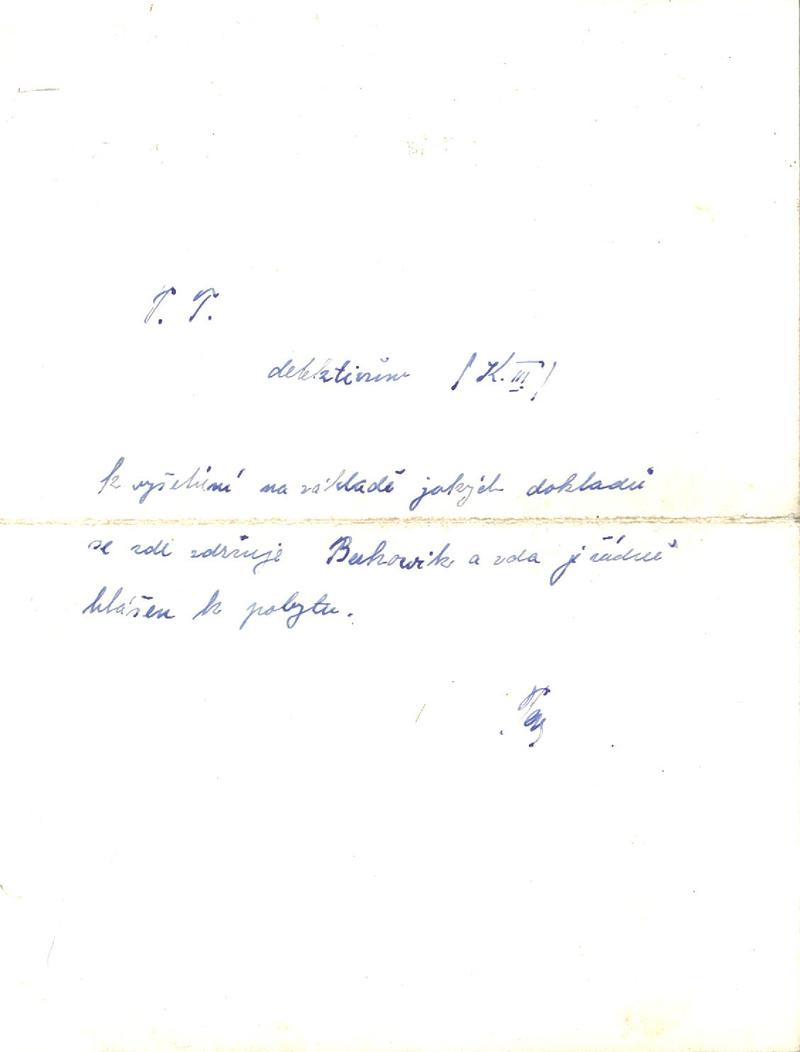 P. T.
detektivům /K. III/
k vyšetření na základě jakých dokladů
se zde zdržuje Bukowik a zda je řádně
hlášen k pobytu.